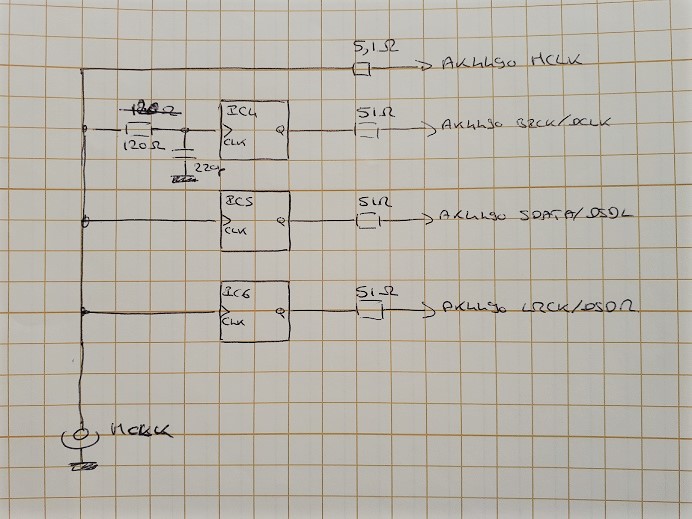 5,1Ω
AK4490 MCLK
IC4
Q
CLK
120Ω
22p
51Ω
AK4490 BRCK/DCLK
IC5
Q
CLK
51Ω
AK4490 SDATA/DSDL
IC6
Q
CLK
51Ω
AK4490 LRCK/DSDR
MCLK